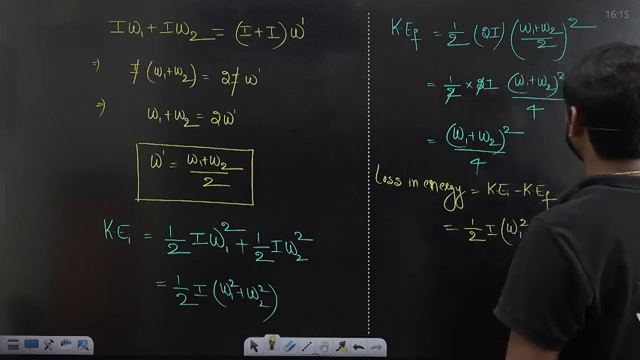 16:15
Iω₁ + Iω₂ = (I+I)ω'
⇒ I(ω₁+ω₂) = 2Iω'
⇒ ω₁+ω₂ = 2ω'
ω' = (ω₁+ω₂)/2
K·Eᵢ = 1/2 Iω₁² + 1/2 Iω₂²
= 1/2 I (ω₁²+ω₂²)
K·E_f = 1/2 (2I) ((ω₁+ω₂)/2)²
= 1/2 × 2I · (ω₁+ω₂)²/4
= (ω₁+ω₂)²/4
Loss in energy = KEᵢ - KE_f
= 1/2 I (ω₁²